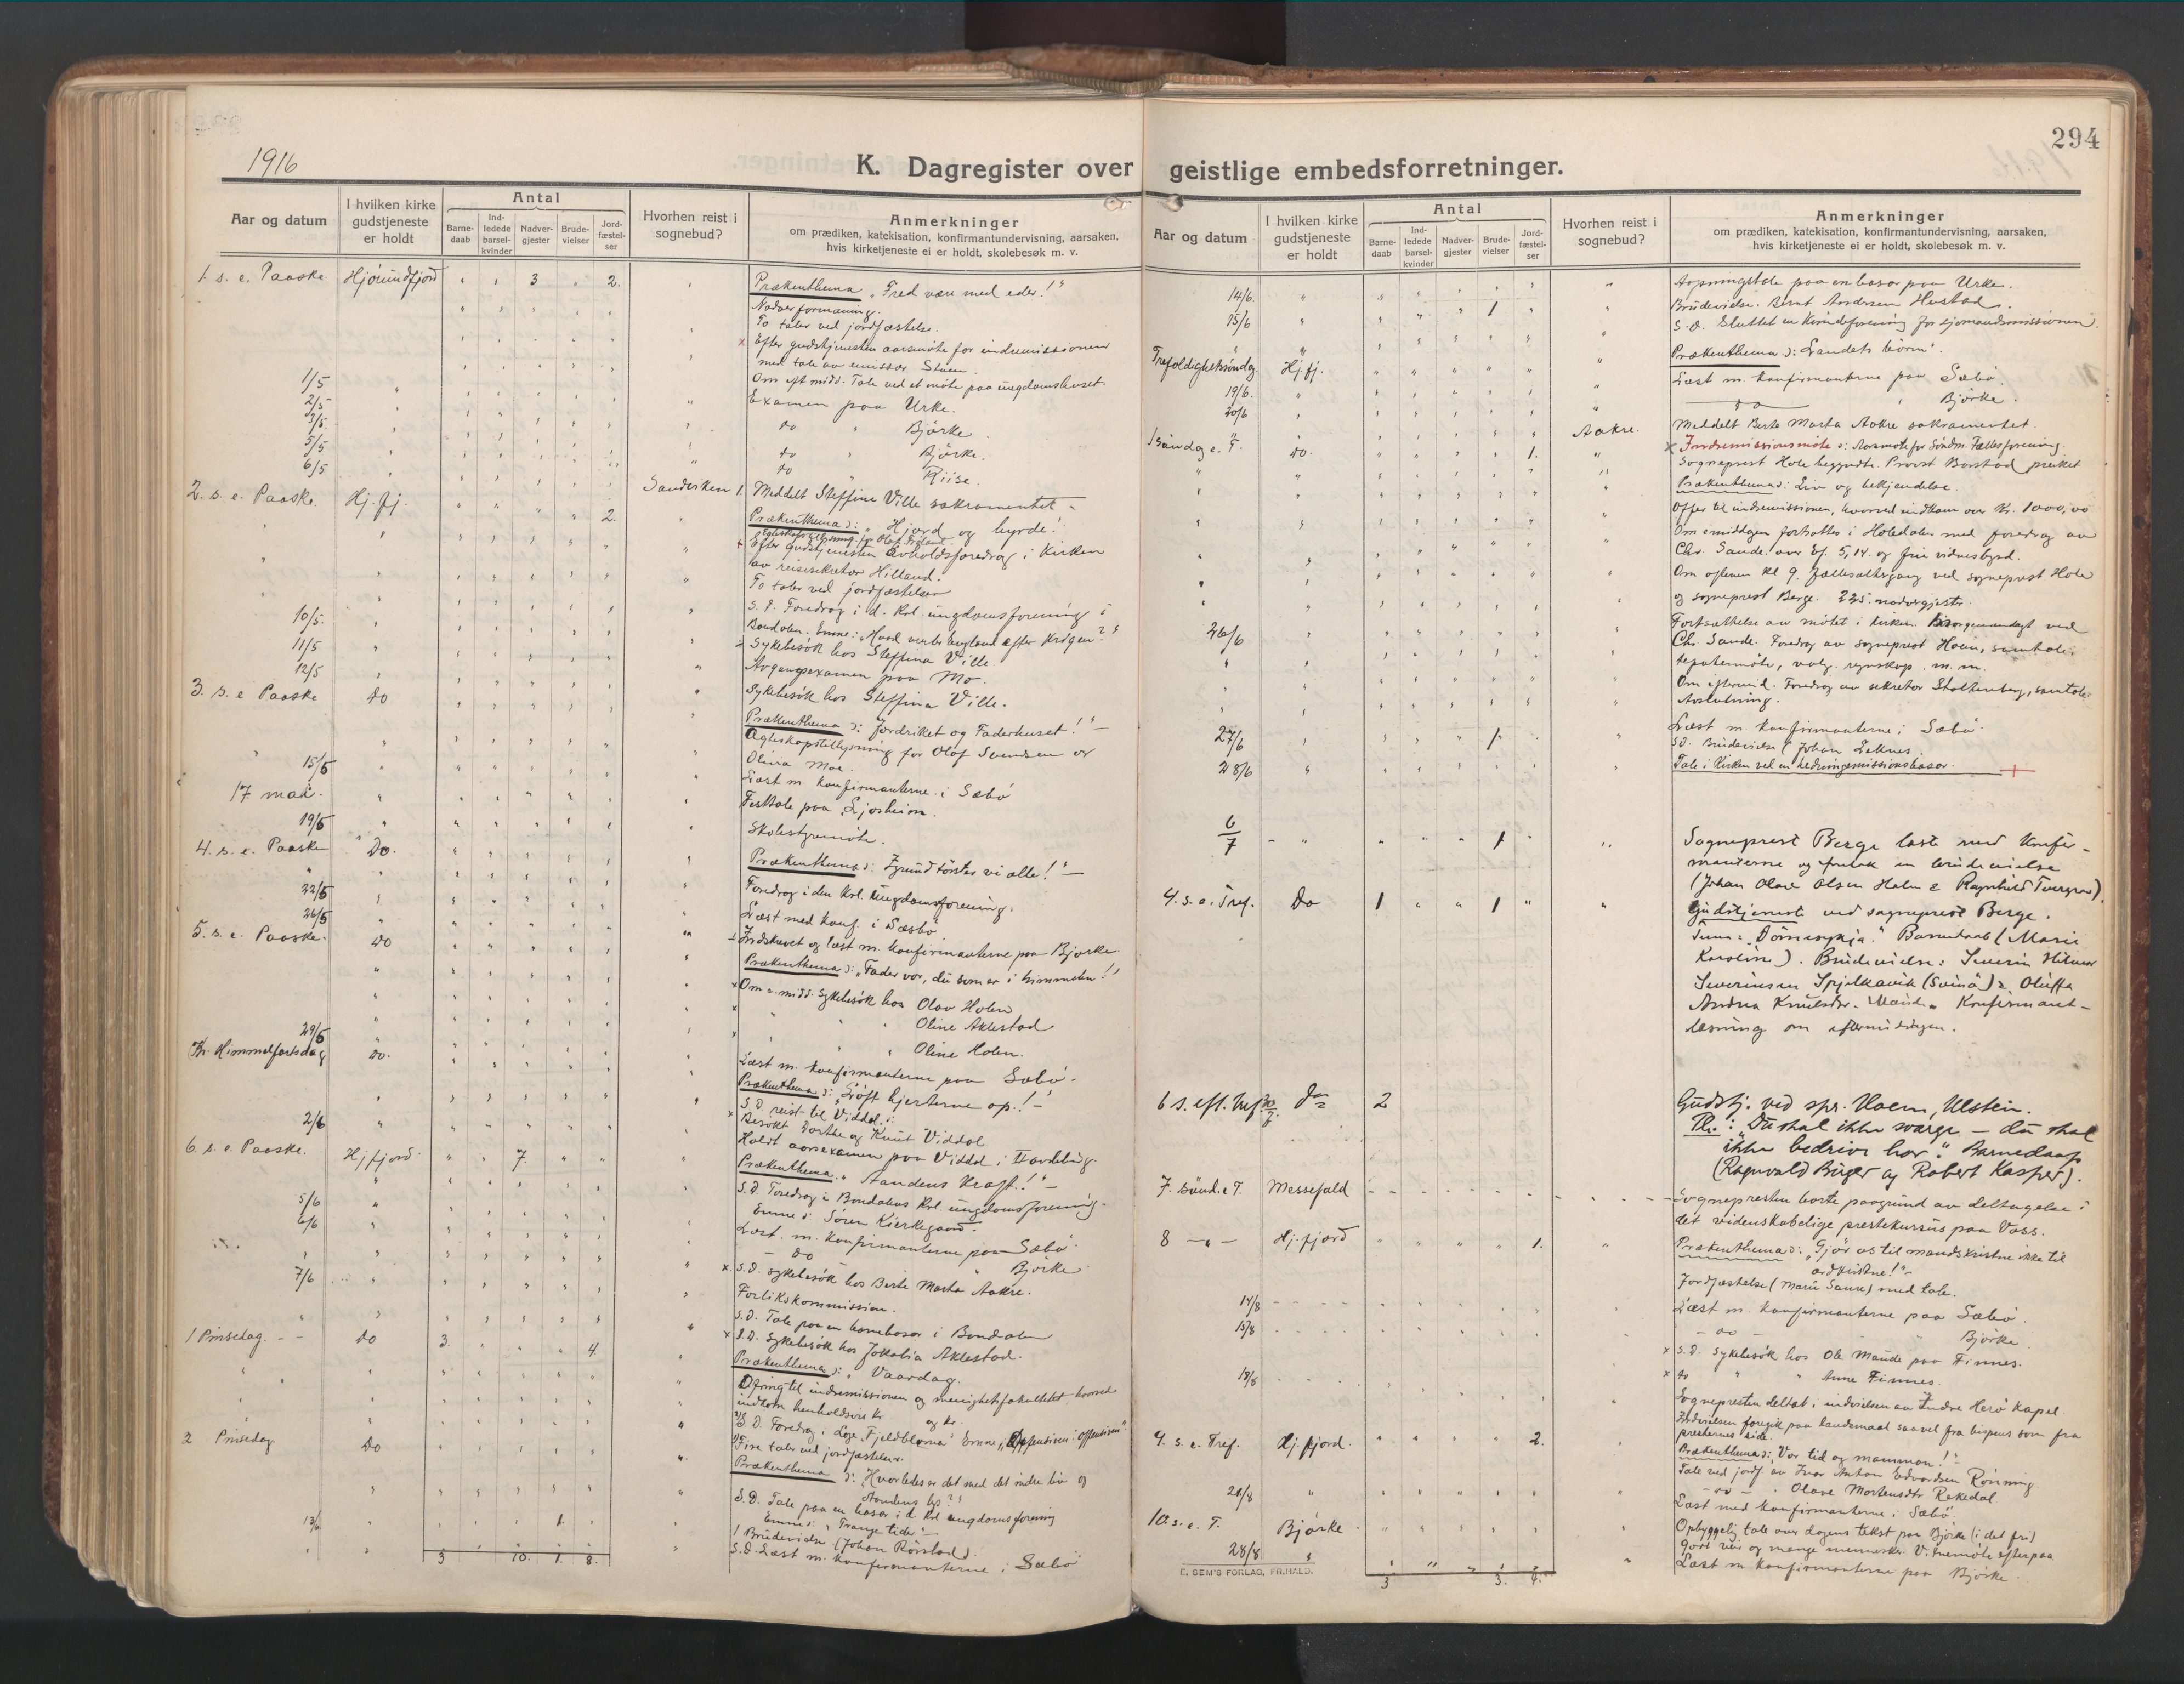 294
1916
K. Dagregister over geistlige embedsforretninger.
Aar og datum
I hvilken kirke gudstjeneste er holdt
Antal
Barne-daab
Ind-ledede barsel-kvinder
Nadver-gjester
Brude-vielser
Jord-fæstel-ser
Hvorhen reist i sognebud?
Anmerkninger
om prædiken, katekisation, konfirmantundervisning, aarsaken,
hvis kirketjeneste ei er holdt, skolebesøk m. v.
1. s. e. Paaske Hjørundfjord 3 2. Prækenthema „Fred være med eder!"
Nadverformaning.
To taler ved jordfæstelse.
x Efter gudstjenesten aarsmøte for indremissionen
med tale av emissær Stuen.
Om eft.midd. Tale ved et møte paa ungdomshuset.
1/5 Examen paa Urke.
2/5 do Bjørke.
3/5 do Bjørke.
5/5 do Riise.
6/5 Sandviken 1. Meddelt Steffine Ville sakramentet.
2. s. e. Paaske Hj.fj. 2. Prækenthema: „Hjord og hyrde!"
x Efter gudstjenesten avholdsforedrag i Kirken
av reisesekretær Hilland.
To taler ved jordfæstelser
S. D. Foredrag i d. krl. ungdomsforening i
Bondalen. Emne: „Hvad venter England efter Krigen?"
10/5. Sykebesøk hos Steffina Ville.
11/5 Avgangsexamen paa Mo.
12/5 Sykebesøk hos Steffina Ville.
3. s. e Paaske do Prækenthema: Jordriket og Faderhuset!"
Ægteskapstillysning for Olaf Svendsen og
Olina Moe.
15/5 Læst m. konfirmanterne i Sæbø
17 mai. Festtale paa Ljosheim.
19/5 Skolestyremøte.
4. s. e. Paaske Do. Prækenthema: I grund tørster vi alle!"
Foredrag i den krl. ungdomsforening.
22/5 Læst med konf. i Sæbø
26/5 Indskrevet og læst m. konfirmanterne paa Bjørke
5. s. e. Paaske. do Prækenthema: „Fader vor, du som er i himmelen!"
x Om e.midd. sykebesøk hos Olav Holen
x " " " Oline Aklestad
x " " " Oline Holen.
29/5 Læst m. konfirmanterne paa Sæbø.
Kr. Himmelfartsdag do. Prækenthema: „Løft hjerterne op!"
S. D. reist til Viddal:
x Besøkt Dorthe og Knut Viddal
2/6 Holdt aarsexamen paa Viddal i
6. s. e. Paaske. Hj.fjord 7. Prækenthema: „Aandens Kraft!"
S. D. Foredrag i Bondalens krl. ungdomsforening.
Emne: Søren Kierkegaard.
5/6 Læst. m. konfirmanterne paa Sæbø.
6/6 do " Bjørke
x S. D. sykebesøk hos Berte Marta Aakre.
7/6 Forlikskommission.
S. D. Tale paa en bornebasar i Bondalen
x S. D. Sykebesøk hos Jokobia Aklestad.
1 Pinsedag. do 3. 4. Prækenthema: „Vaardag.
Ofring til indremissionen og menighetsfakultetet hvorved
indkom henholdsvis kr og kr.
S. D. Foredrag i Loge „Fjeldblomen" Emne: „Defensiven: offensiven"
Fire taler ved jordfæstelser.
2 Pinsedag Do Prækenthema: „Hvorledes er det med det indre liv og
Aandens lys?"
S. D. Tale paa en basar i d. krl ungdomsforening
Emne: „Trange tider"
13/6 1. 1 Brudevielse (Johan Rørstad).
S. D. Læst m. konfirmanterne i Sæbø
3 10. 1. 8.
Aar og datum
I hvilken kirke gudstjeneste er holdt
Antal
Barne-daab
Ind-ledede barsel-kvinder
Nadver-gjester
Brude-vielser
Jord-fæstel-ser
Hvorhen reist i sognebud?
Anmerkninger
om prædiken, katekisation, konfirmantundervisning, aarsaken,
hvis kirketjeneste ei er holdt, skolebesøk m. v.
14/6. Aapningstale paa en basar paa Urke.
15/6 1 Brudevielse. Bernt Andersen Hustad.
S. D. Sluttet en Kvindeforening for sjømandsmissionen.
Trefoldighetssøndag Hj.fj. Prækenthema: „Landets børn".
19/6. Læst m. konfirmanterne paa Sæbø.
20/6 do Bjørke.
Aakre. Meddelt Berte Marta Aakre sakramentet.
1 Søndag e. T. do. 1. x Indremissionsmøte: Aarsmøte for Søndm. Fællesforening.
Sogneprest Hole begyndte. Provst Barstad preiket
Prækenthema: Liv og bekjendelse.
Offer til indremissionen, hvorved indkom over Kr. 1000,00
Om emiddagen fortsattes i Holedalen med foredrag av
Chr. Sande over Ef. 5,14. og frie vidnesbyrd.
Om aftenen kl 9. fællesaltergang ved sogneprest Hole
og sogneprest Berge. 225. nadvergjester.
26/6 Fortsættelse av møtet i kirken. Morgenandagt ved
Chr. Sande. Foredrag av sogneprest Hoem, samtale.
møte, valg. regnskap. m. m.
Om efterm.d. Foredrag av sekretær Stoltenberg, samtale.
Avslutning.
27/6 1. Læst m. konfirmanterne i Sæbø
S D. Brudevielse (Johan Leknes.
28/6 Tale i Kirken ved en hedningemissionsbasar.
6/7 1 Sogneprest Berge læste med konfir-
manterne og foretok en brudevielse
(Johan Olave Olsen Holm & Ragnhild
4. s. e. Tref. Do 1 1 Gudstjeneste ved sogneprest Berge.
Barnedaab (Marie
Karoline). Brudevielse: Severin Hilmar
Severinsen Spjelkavik (Svinø) & Oluffa
Andrea Konfirmant-
læsning om eftermiddagen.
6 s. eft. tref. 30/7 do 2 Gudstj. ved spr. Hoem, Ulstein.
Th.: „Du skal ikke sværge – du skal
ikke bedrive hor." Barnedaap
(Ragnvald Birger og Robert Kasper).
7. Sønd. e T. Messefald Sognepresten borte paagrund av deltagelse i
det videnskabelige prestekursus paa Voss.
8 — " — Hj.fjord 1. Prækenthema: „Gjør os til mandskristne ikke til
ordkristne!"
Jordfæstelse (Marie Saure) med tale.
14/8 Læst m. konfirmanterne paa Sæbø.
15/8 do " Bjørke
x S. D. Sykebesøk hos Ole Maude paa Finnes.
x do " " Anne Finnes.
18/8 Sognepresten deltat i indvielsen av Indre Herø kapel
Indvielsen foregik paa landsmaal saavel fra bispens som fra
presternes side.
9. s. e. Tref. Hj.fjord. 2. Prækenthema: „Vor tid og mammon!"
Tale ved jordf. av Ivar Anton Edvardsen Rønning
do " Olave Mortensdtr Rekedal
21/8 Læst med konfirmanterne i Sæbø.
10. s. e. T. Bjørke Opbyggelig tale over dagens tekst paa Bjørke (i det fri)
Godt veir og mange mennesker. Vitnemøte efterpaa
28/8 Læst m konfirmanterne paa Bjørke.
3 3. 4.
E. SEM'S FORLAG, FR.HALD.